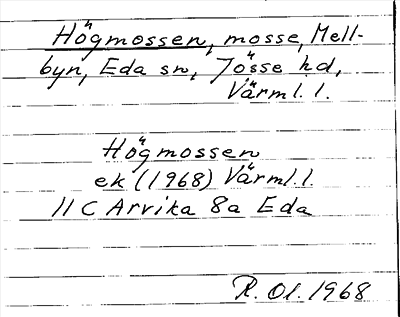 Högmossen, mosse, Mell-
byn, Eda sn, Jösse hd,
Värml. l.
Högmossen
ek (1968) Värml. l.
11 C Arvika 8a Eda
R. Ol. 1968